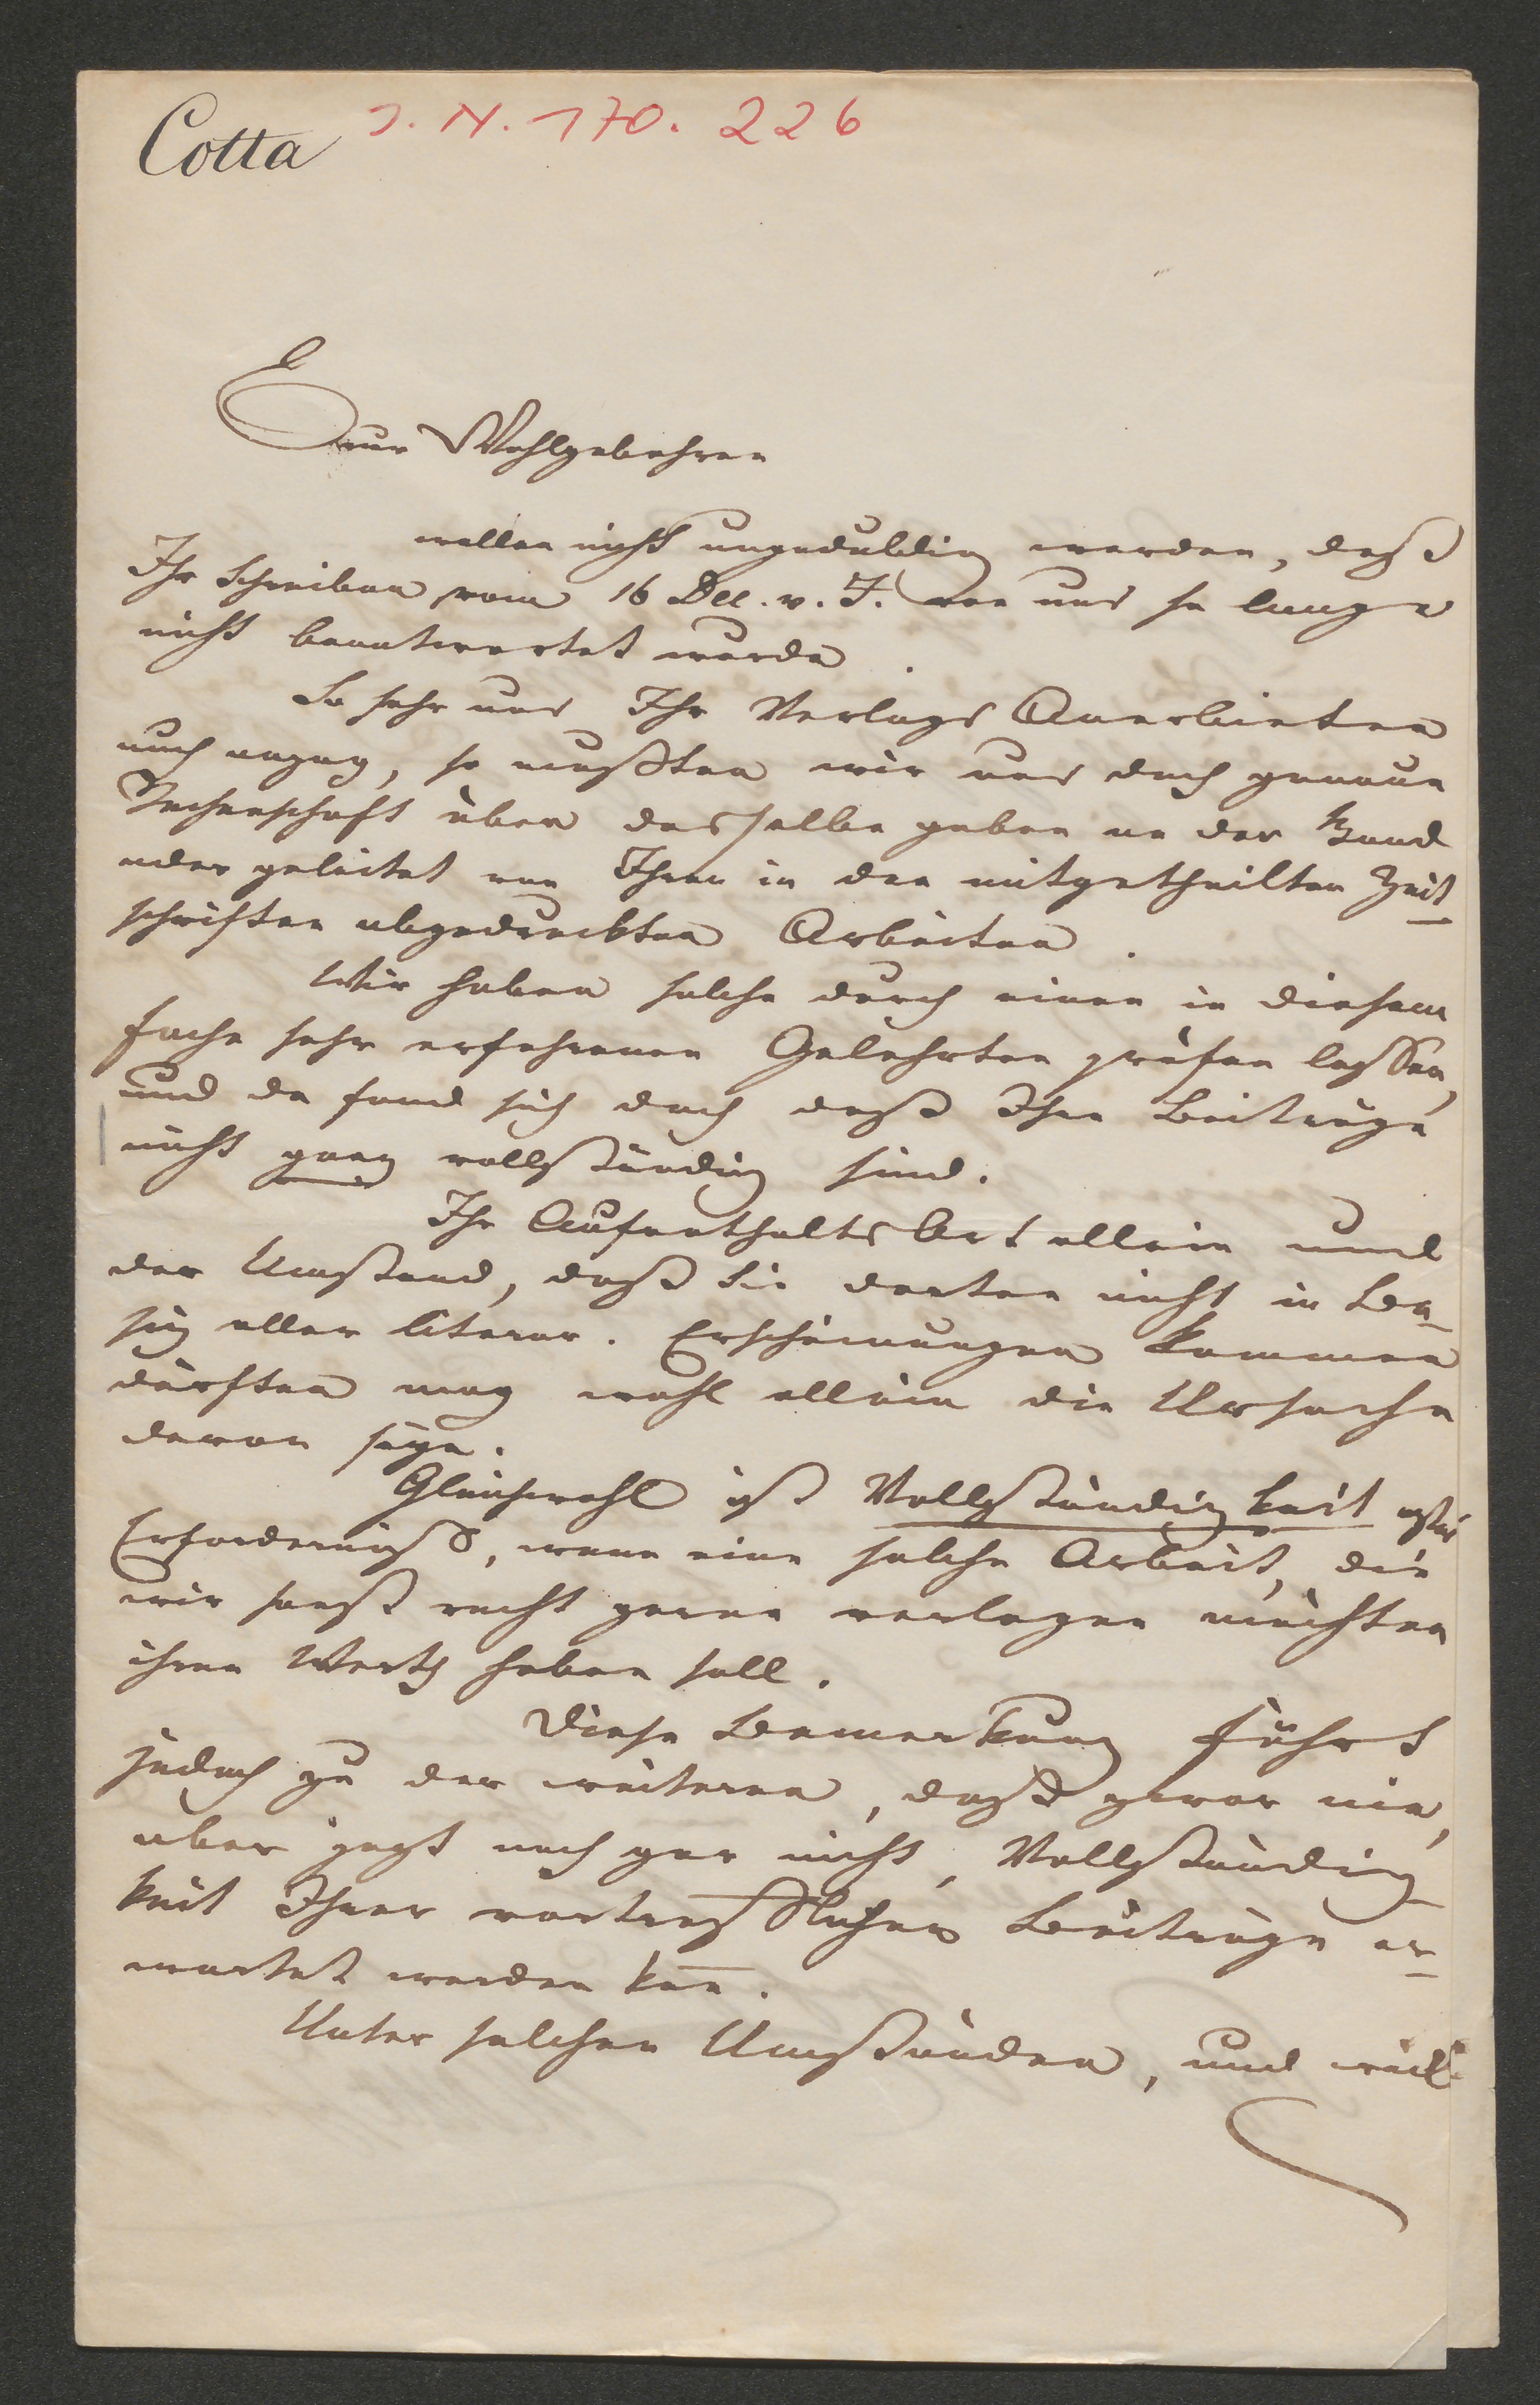 Cotta
I. N. 170. 226
Euer Wohlgebohren
wollen nicht ungeduldig werden, daß
Ihr Schreiben vom 16 Dec. v. J. von uns so lange
nicht beantwortet wurde.
So sehr uns Ihr Verlags Anerbieten
auch anzog, so mußten wir uns doch genaue
Rechenschaft über dasselbe geben an der Hand
oder geleitet von Ihren in den mitgetheilten Zeit-
schriften abgedruckten Arbeiten.
Wir haben solche durch einen in diesem
Fache sehr erfahrenen Gelehrten prüfen lassen,
und da fand sich doch daß Ihre Beiträge
nicht ganz vollständig sind.
Ihr Aufenthalts Ort allein und
der Umstand, daß Sie dorten nicht in Be-
siz aller literar. Erscheinungen kommen
dürften mag wohl allein die Ursache
davon seyn.
Gleichwohl ist Vollständigkeit erstes
Erforderniß, wenn eine solche Arbeit, die
wir sonst recht gerne verlegen möchten
ihren Werth haben soll.
Diese Bemerkung führt
jedoch zu der weiteren, daß zwar nie,
aber jezt noch gar nicht, Vollständig-
keit Ihrer vortrefflichen Beiträge er-
wartet werden kann.
Unter solchen Umständen, und weil